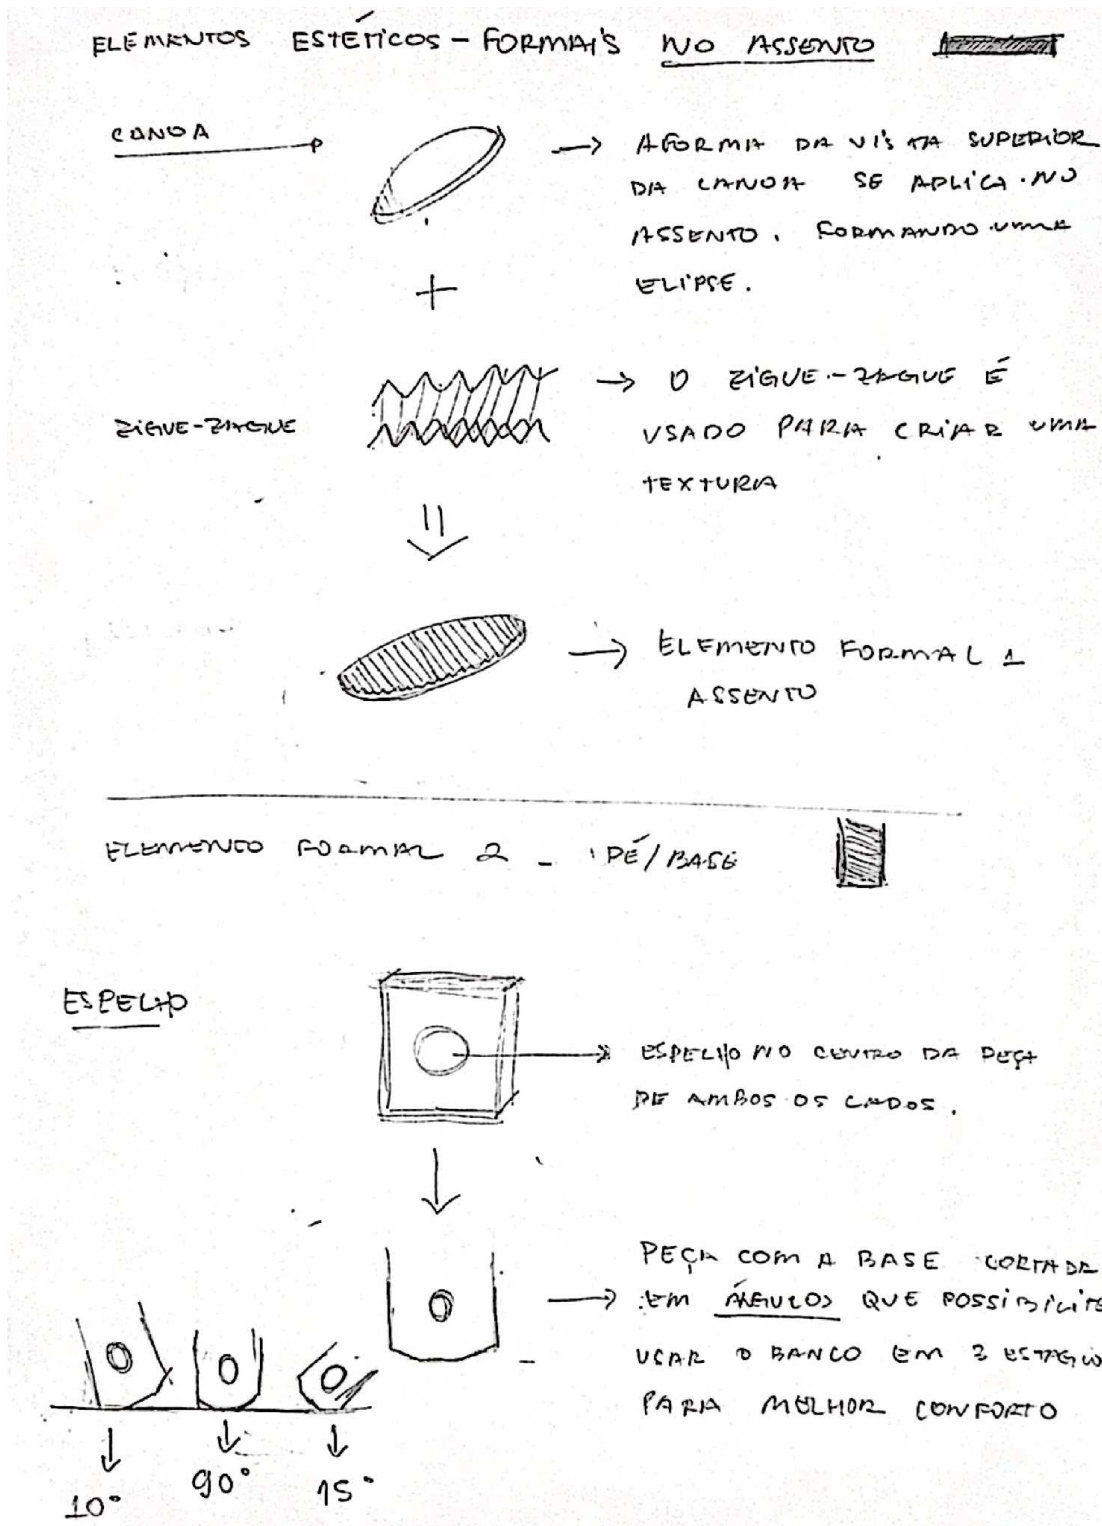 ELEMENTOS ESTÉTICOS - FORMAIS NO ASSENTO
CANOA
A FORMA DA VISTA SUPERIOR
DA CANOA SE APLICA NO
ASSENTO. FORMANDO UMA
ELIPSE.
+
ZIGUE-ZAGUE
O ZIGUE-ZAGUE É
USADO PARA CRIAR UMA
TEXTURA
ELEMENTO FORMAL 1
ASSENTO
ELEMENTO FORMAL 2 - PÉ/BASE
ESPELHO
ESPELHO NO CENTRO DA PEÇA
DE AMBOS OS LADOS.
PEÇA COM A BASE CORTADA
EM ÂNGULOS QUE POSSIBILITE
USAR O BANCO EM 3 ESTAGIO
PARA MELHOR CONFORTO
10° 90° 15°